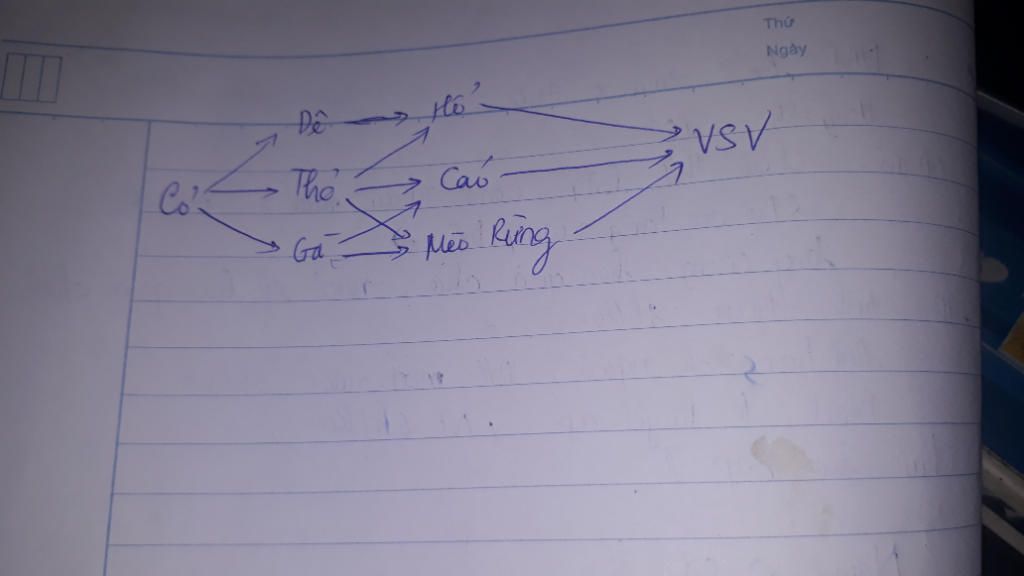 Thứ
Ngày
Dê Hổ
VSV
Cỏ Thỏ Cáo
Gà Mèo Rừng